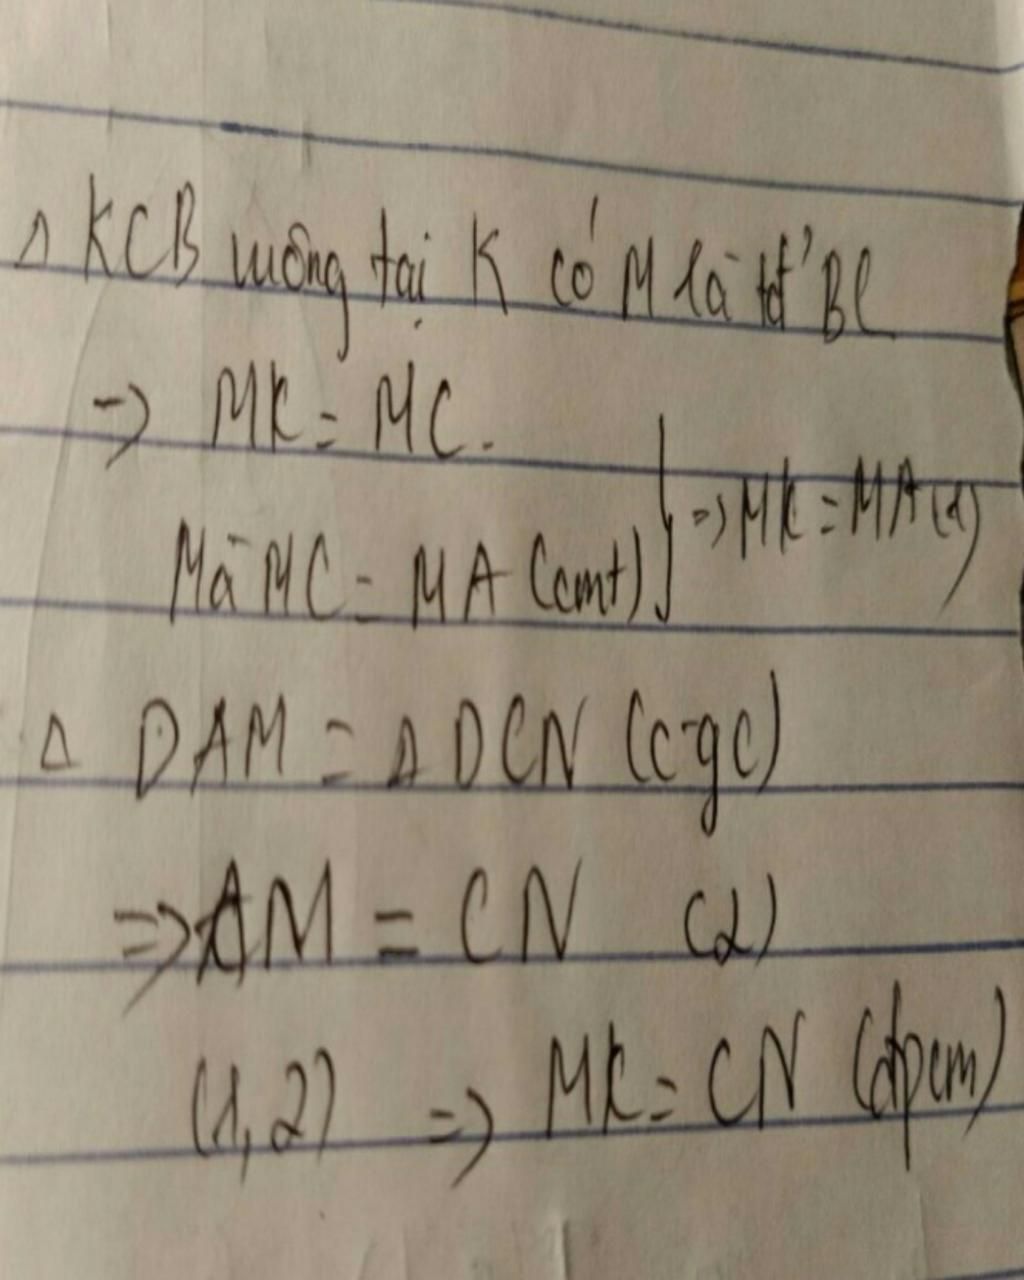 Δ KCB vuông tại K có M là tđ' BC
-> MK = MC.
Mà MC = MA (cmt) } => MK = MA (1)
Δ DAM = Δ DCN (c-g c)
=> AM = CN (2)
(1, 2) => MK = CN (đpcm)